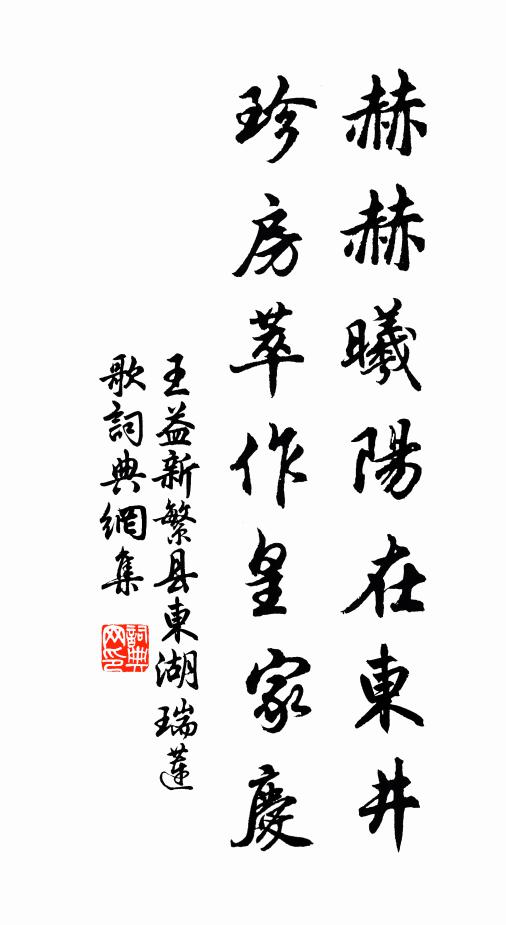 赫赫曦陽在東井
珍房萃作皇家慶
王益新繁县東湖瑞蓮
歌詞典網集
詞典网印